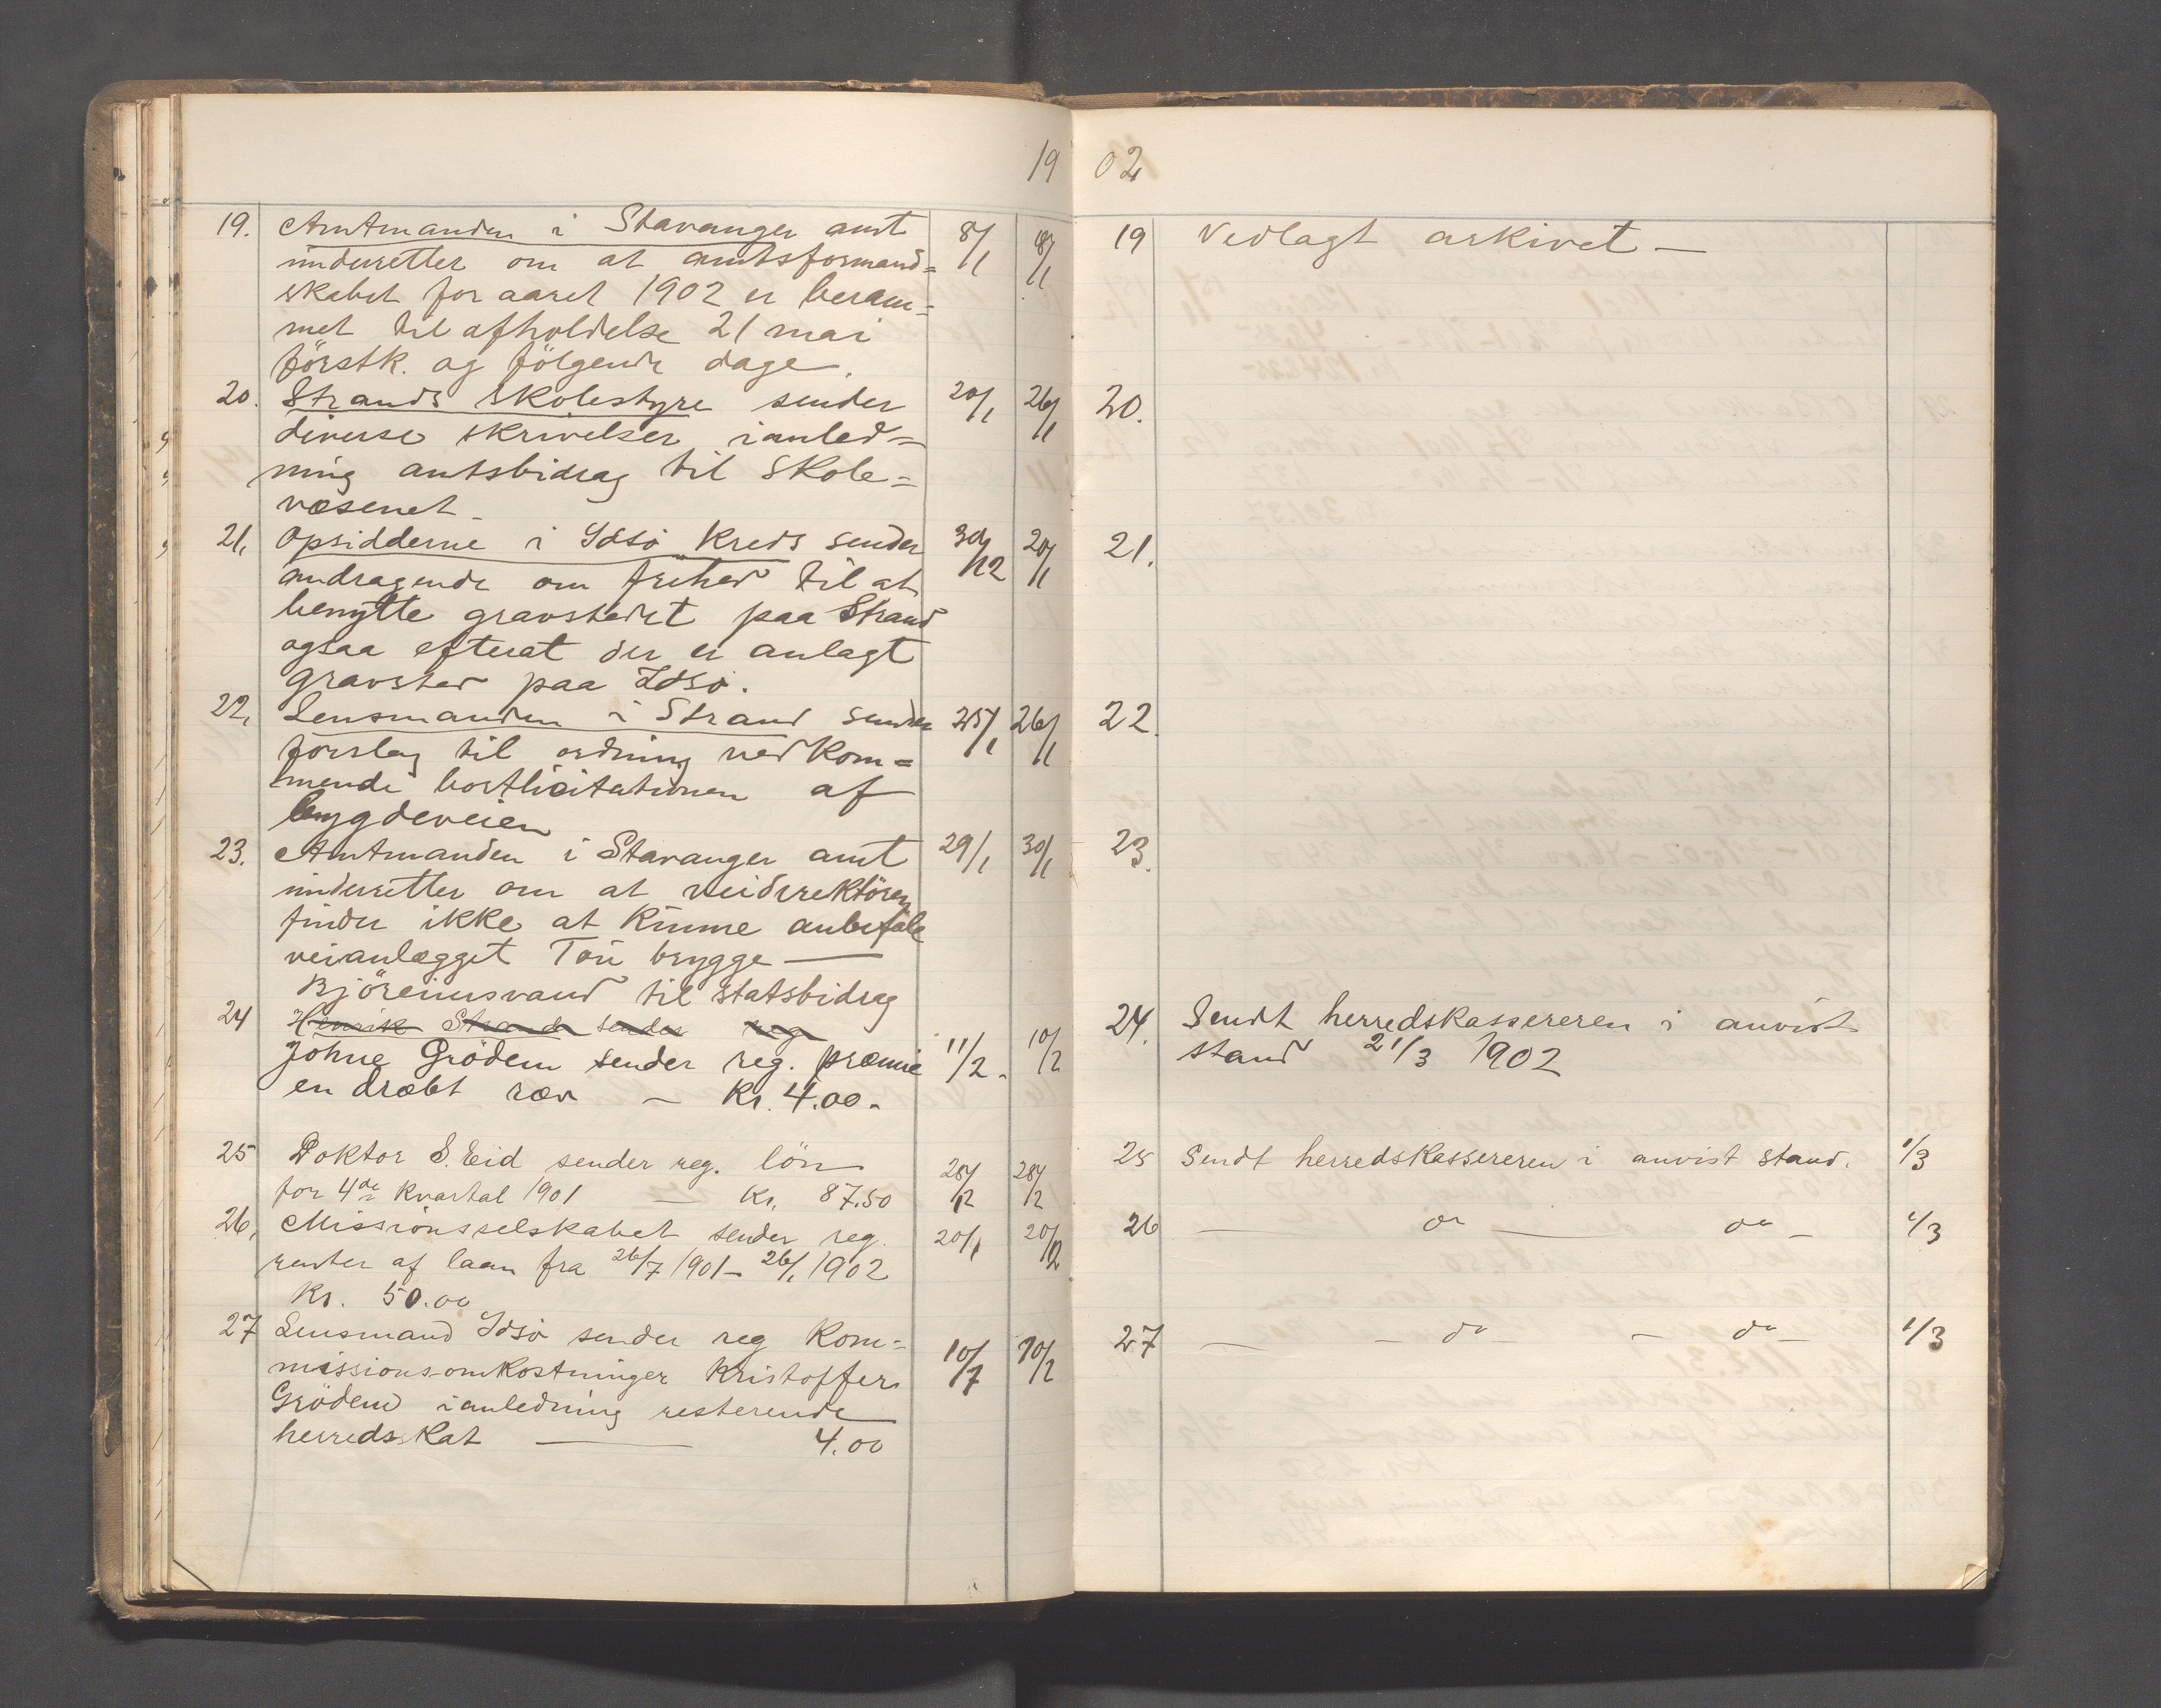 19 02
19. Amtmanden i Stavanger amt 8/1 8/1
underretter om at amtsformand=
skabet for aaret 1902 er beram=
met til afholdelse 21 mai
förstk. og fölgende dage.
20. Strands skolestyre sender 20/1 26/1
diverse skrivelser ianled=
ning amtsbidrag til skole=
væsenet
21. Opsidderne i Idsö kreds sender 30/12 20/1
andragende om frihed til at
benytte gravstedet paa Strand
ogsaa efterat der er anlagt
gravsted paa Idsö.
22. Lensmanden i Strand sender 25/1 26/1
forslag til ordning vedkom=
mende bortlicitationen af
bygdeveien
23. Amtmanden i Stavanger amt 29/1 30/1
underretter om at veidirektören
finder ikke at kunne anbefale
veianlægget Tou brygge —
Björeimsvand til statsbidrag
24 Henrik Strand sender reg
Johne Grödem sender reg. præmie 11/2. 10/2
en dræbt ræv — Kr. 4.00.
25 Doktor S. Eid sender reg. lön 28/12 28/12
for 4de kvartal 1901 — Kr. 87.50
26, Missionsselskabet sender reg. 20/1 20/12
renter af laan fra 26/7 1901 – 26/1 1902
Kr. 50.00
27 Lensmand Idsö sender reg kom= 10/7 10/2
missionsomkostninger Kristoffer
Grödem ianledning resterende
herredsskat — 4.00
19 Vedlagt arkivet —
20.
21.
22.
23.
24. Sendt herredskassereren i anvist
stand 21/3 1902
25 Sendt herredskassereren i anvist stand. 1/3
26 — do — do — 1/3
27 — do — do — 1/3